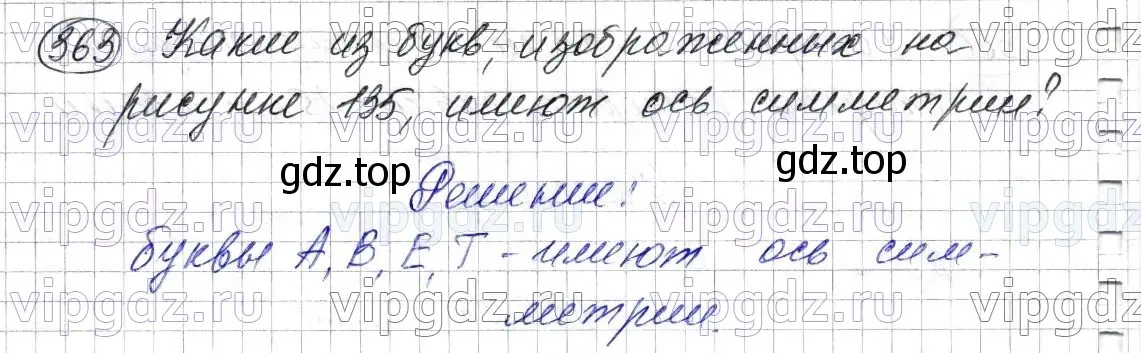 363 Какие из букв, изображенных на
рисунке 135, имеют ось симметрии?
gdz.top
gdz.top
Решение:
буквы А, В, Е, Т - имеют ось сим-
метрии.
vipgdz.ru vipgdz.ru vipgdz.ru vipgdz.ru